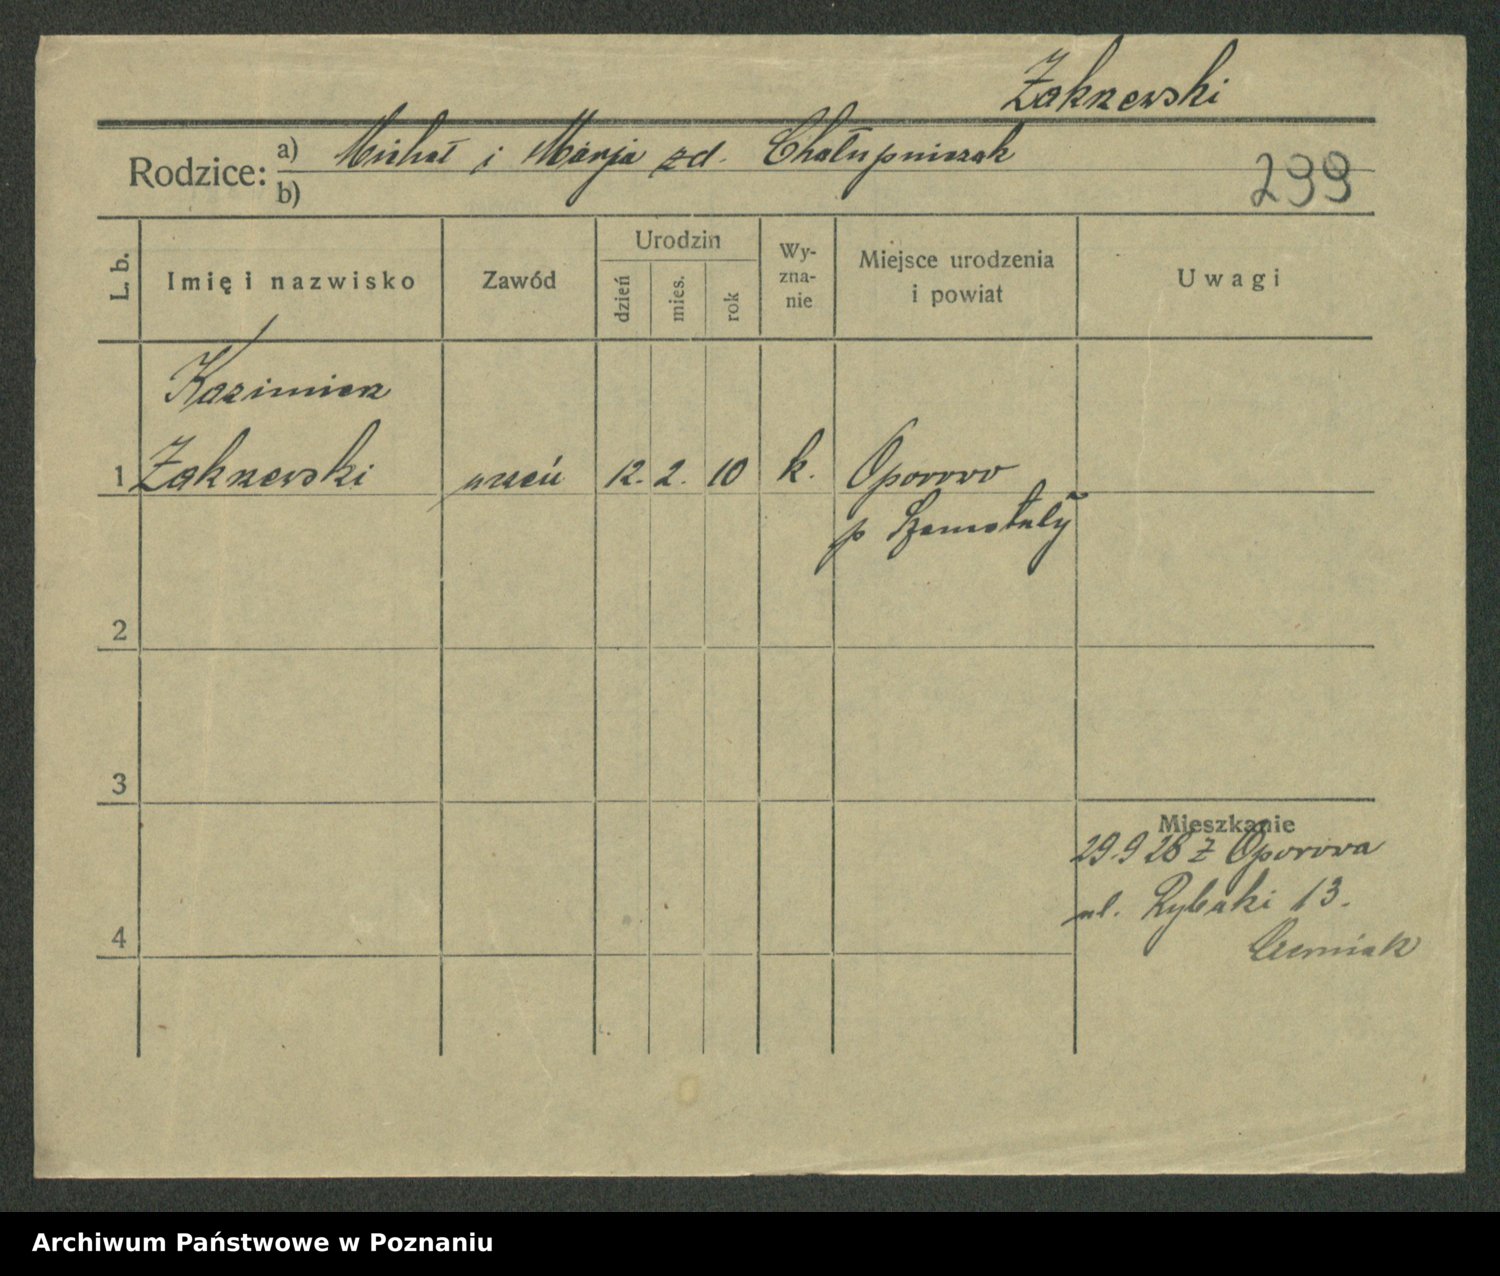 Zakrzewski
Rodzice: a) Michał i Marja zd. Chałupniczak
b)
299
L. b. Imię i nazwisko Zawód Urodzin dzień mies. rok Wy-zna-nie Miejsce urodzenia i powiat Uwagi
Kazimierz
1 Zakrzewski uczeń 12. 2. 10 k. Oporowo
p Szamotuły
2
3
Mieszkanie
29.9 28 z Oporowa
ul. Rybaki 13.
4
Archiwum Państwowe w Poznaniu